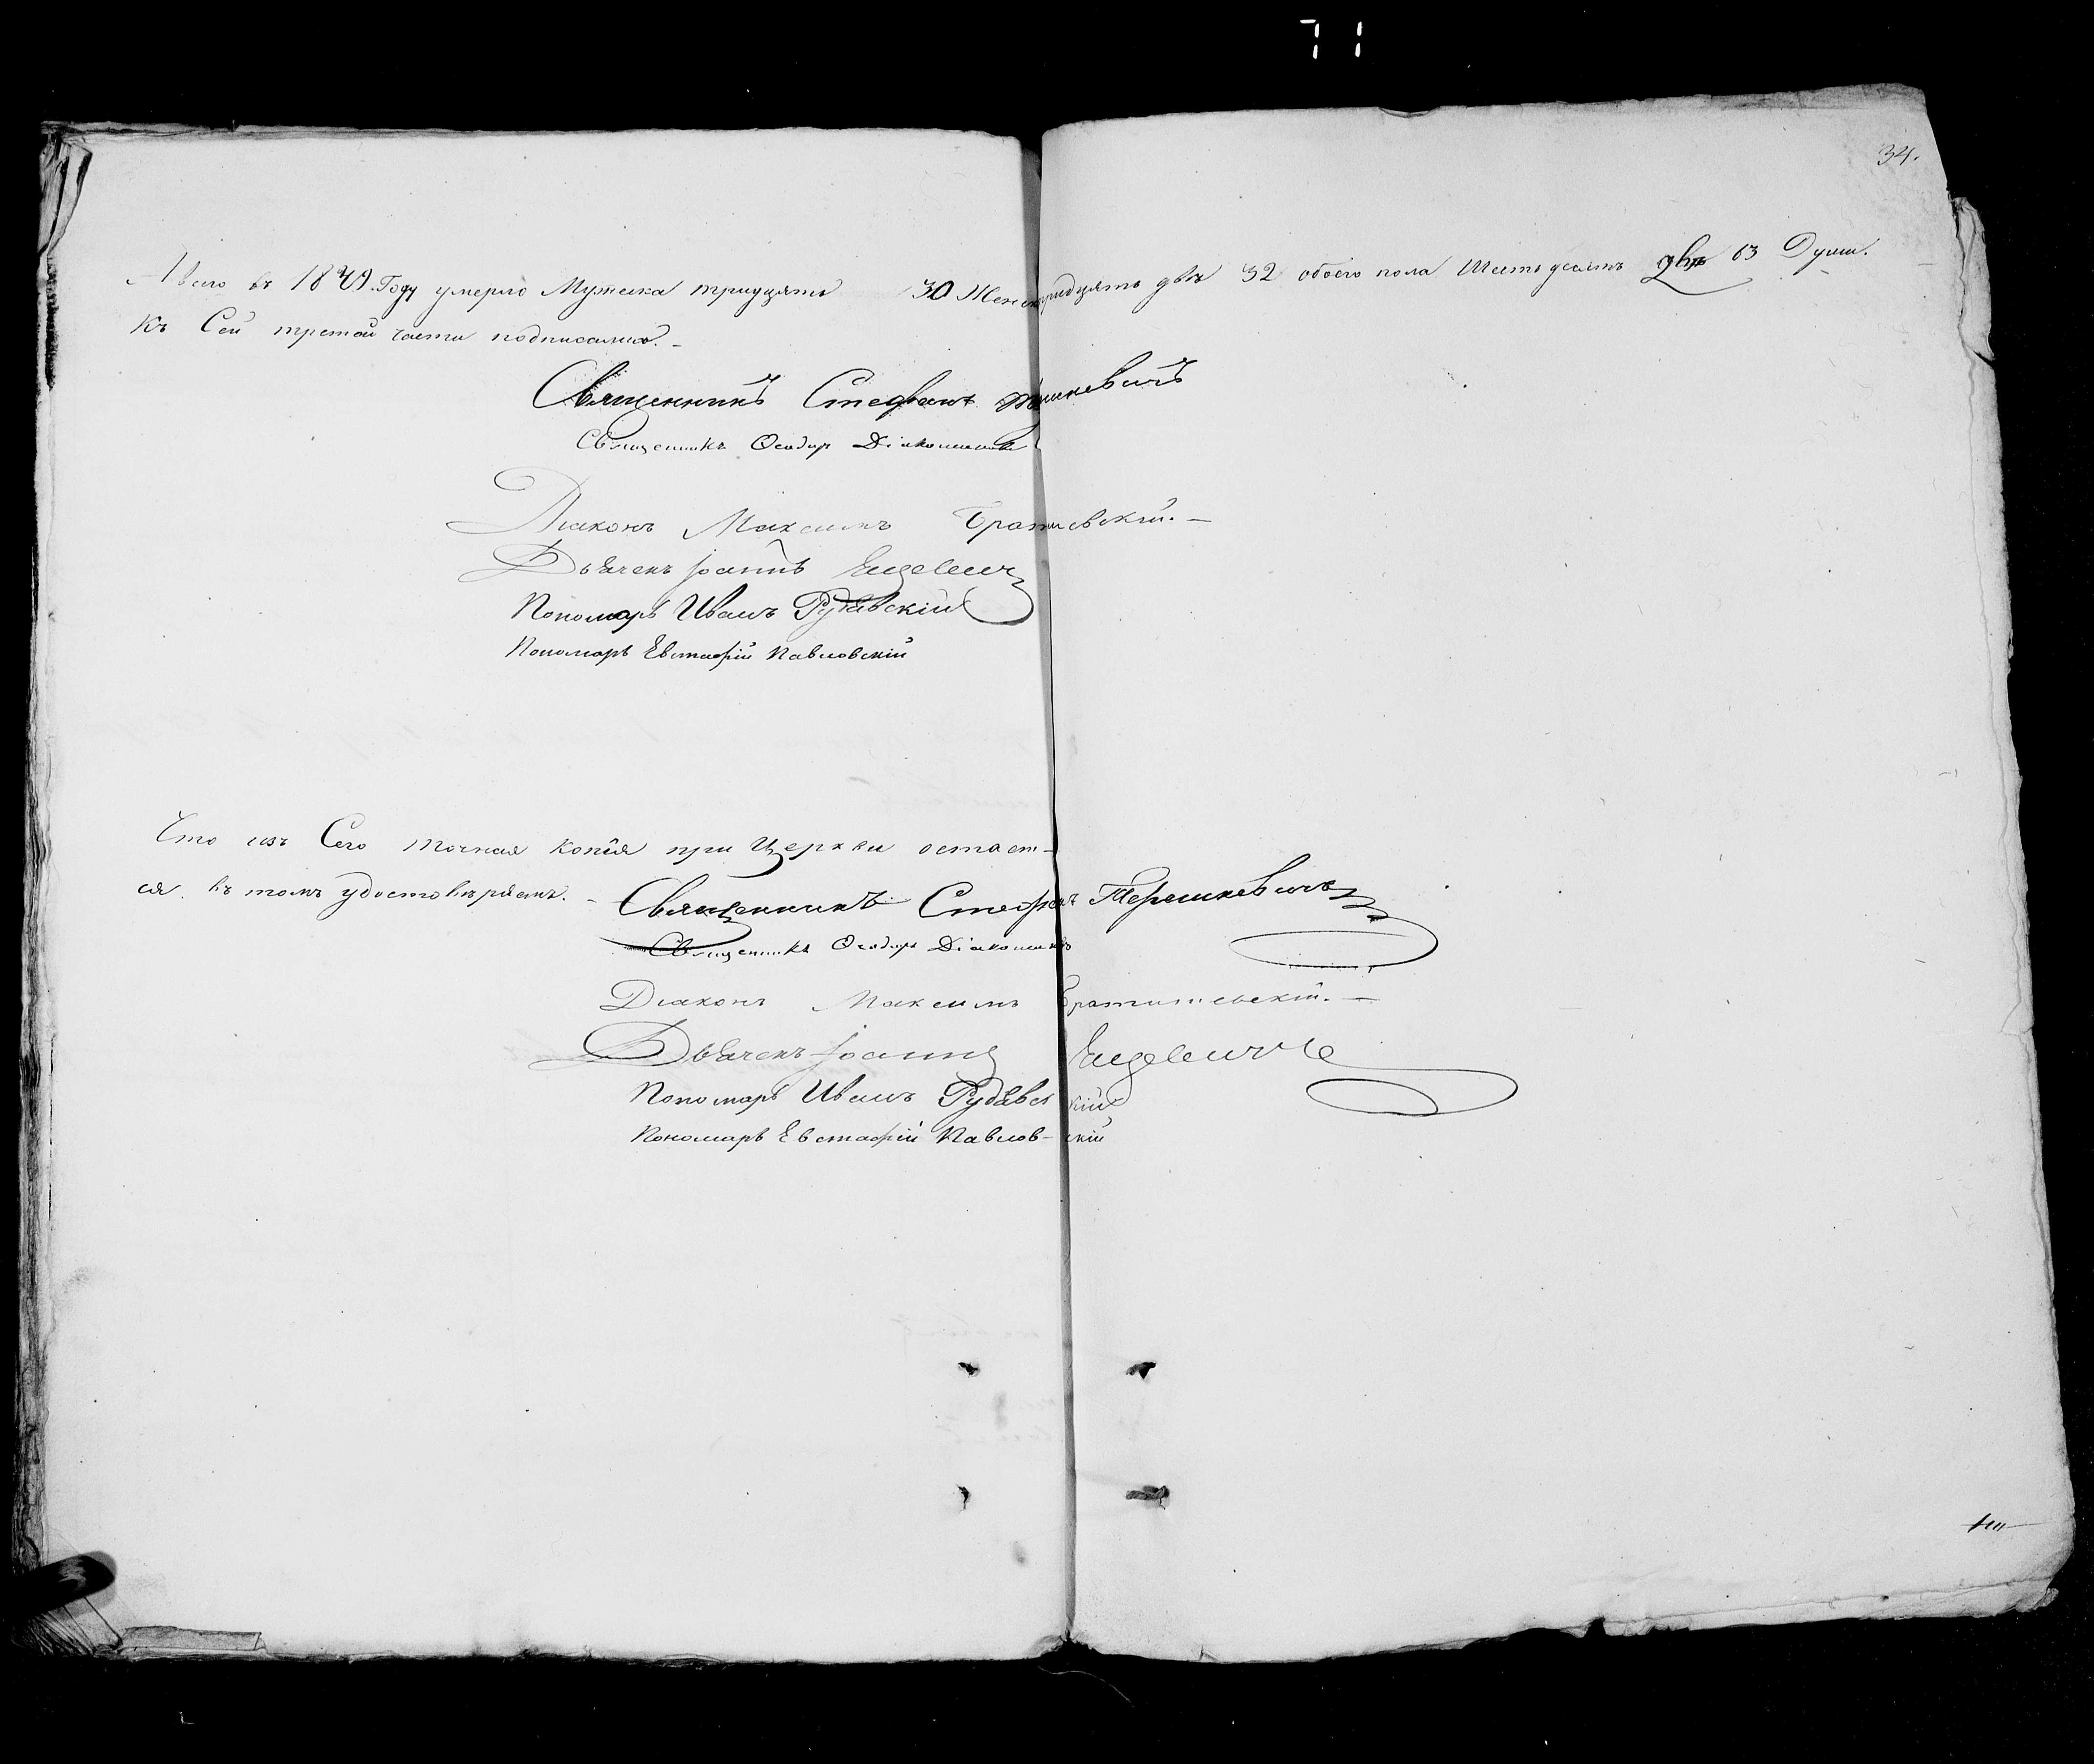 71
34.
А всего въ 18 Году умерло Мужеска тридцять 30 Женска тридцять двѣ 32 обоего пола Шестьдесятъ двѣ 63 Душ.
Къ Сей третой части подписались. –
Священникъ Стефанъ
Священникъ Ѳеодоръ Діакон
Діаконъ Максимъ Братишевскій. —
Дьячекъ Іоаннъ
Пономарь Иванъ Рудавскій
Пономарь Евстафій Павловскій
Что изъ Сего точная копія при Церкви остает-
ся въ томъ удостовѣряемъ. – Священникъ Стефанъ Терешкевичъ
Священникъ Ѳеодоръ Діакон
Діаконъ Максимъ Братишевскій. —
Дьячекъ Іоаннъ
Пономарь Иванъ Рудавскій
Пономарь Евстафій Павлов-скій